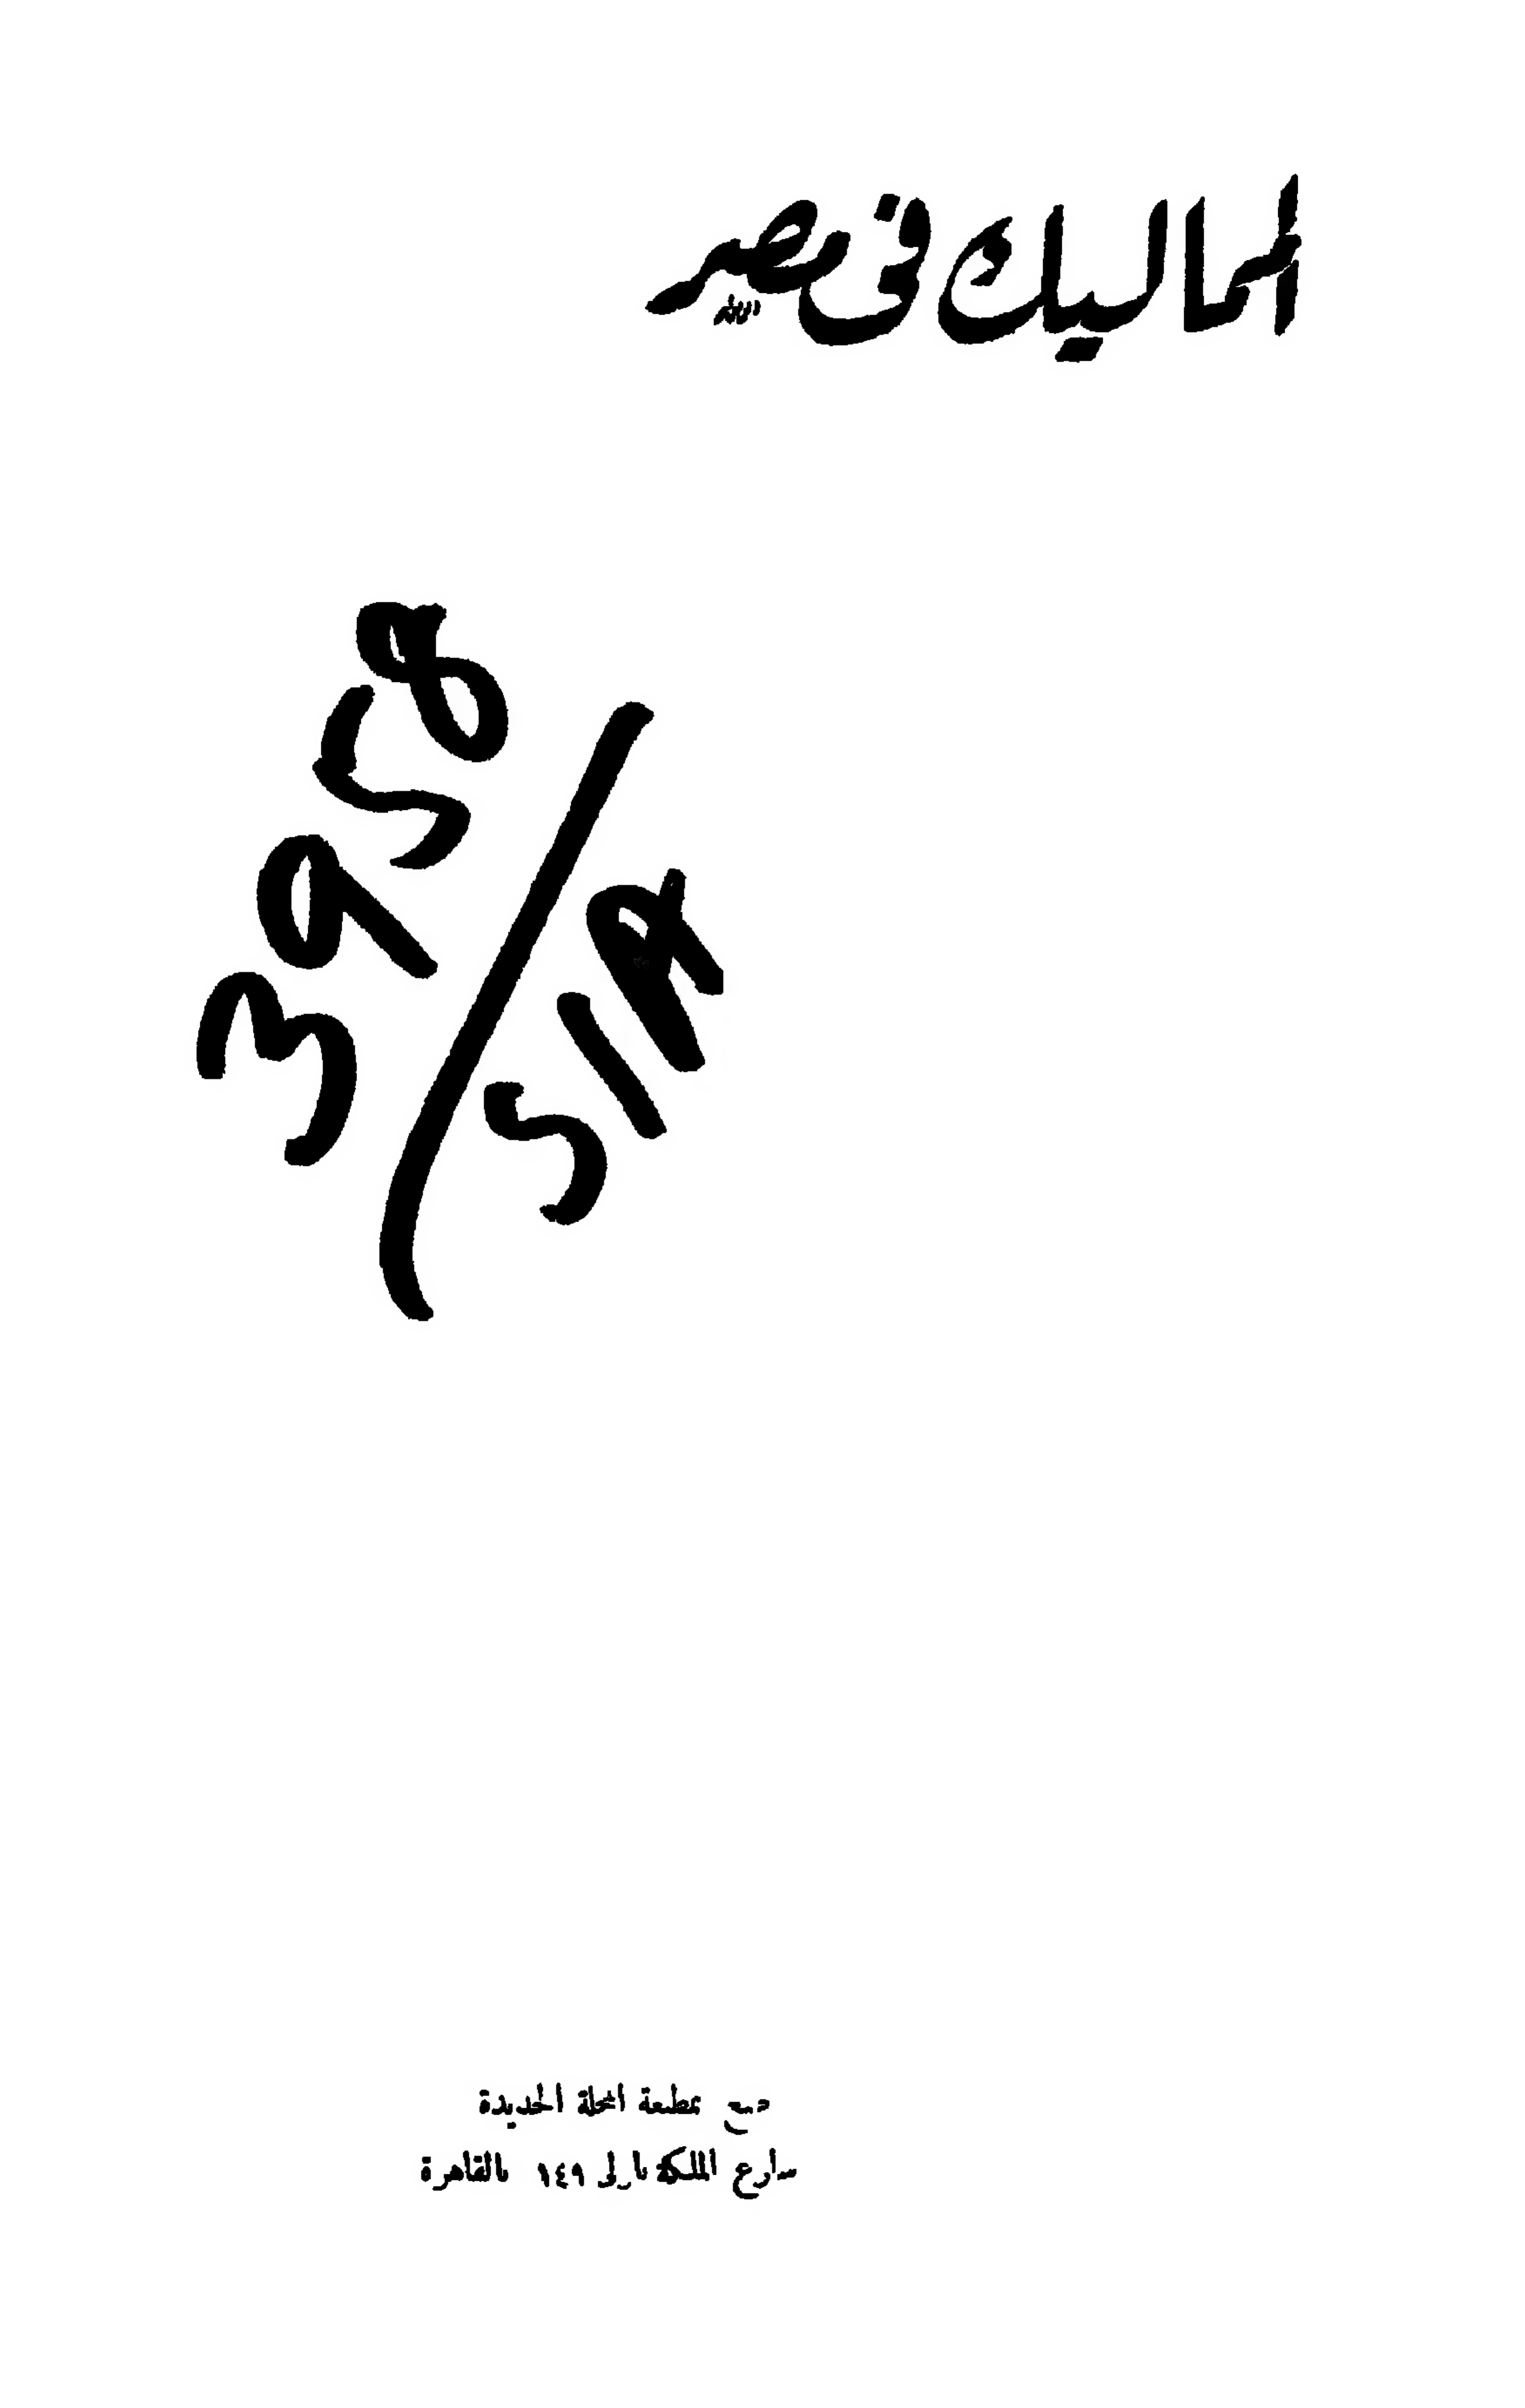 المماليك في مصر
3958
518
طبع بمطبعة المجلة الجديدة
شارع الملكة نازلي ١٤٩ بالقاهرة